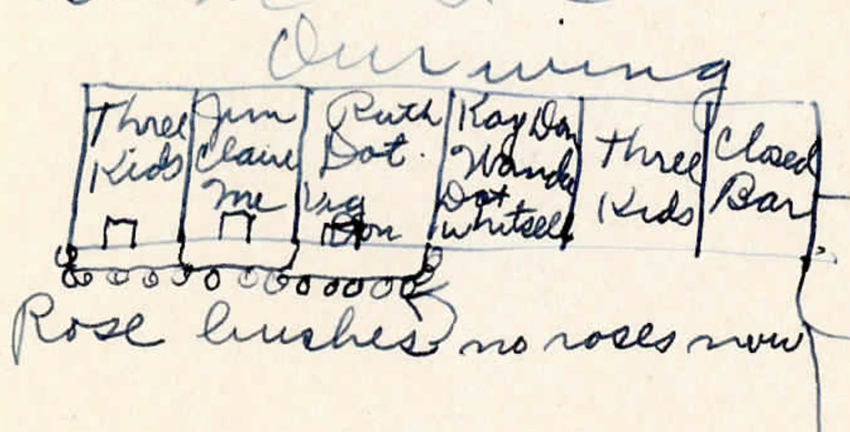 Our wing
Three
Kids
Jim
Claire
me
Ruth
Dot.
Vig
Don
Kay Don
Wanda
Dot
Whitsell
Three
Kids
Closed
Bar
Rose bushes no roses now